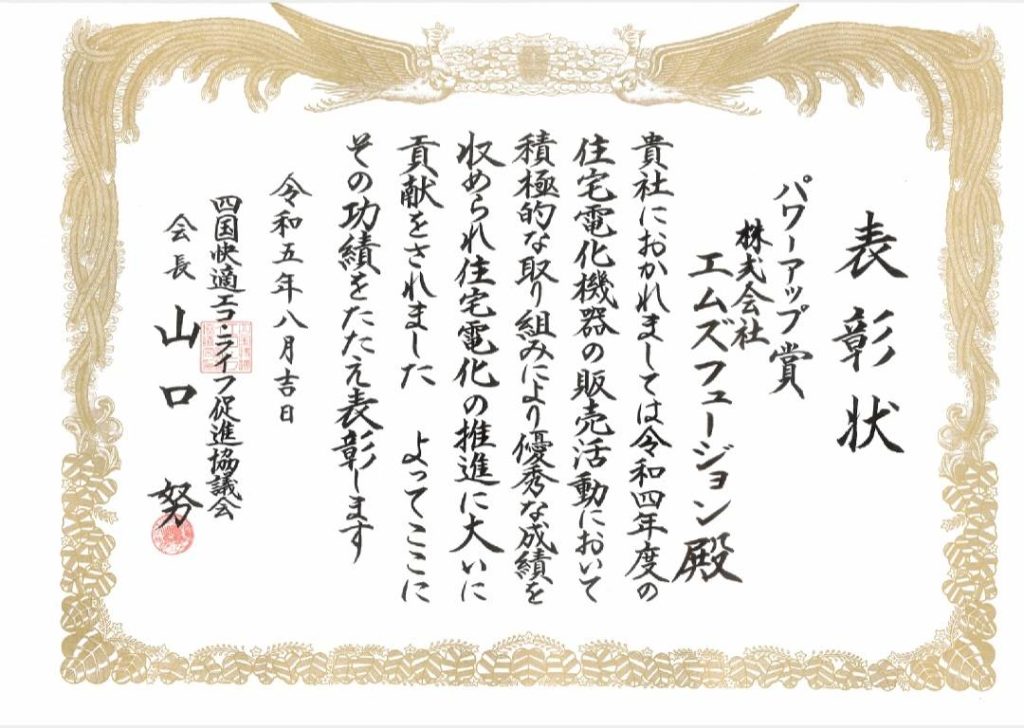 表彰状
パワーアップ賞
株式会社
エムズフュージョン殿
貴社におかれましては令和四年度の
住宅電化機器の販売活動において
積極的な取り組みにより優秀な成績を
収められ住宅電化の推進に大いに
貢献をされました　よってここに
その功績をたたえ表彰します
令和五年八月吉日
四国快適エコ・ライフ促進協議会
会長　山口　努